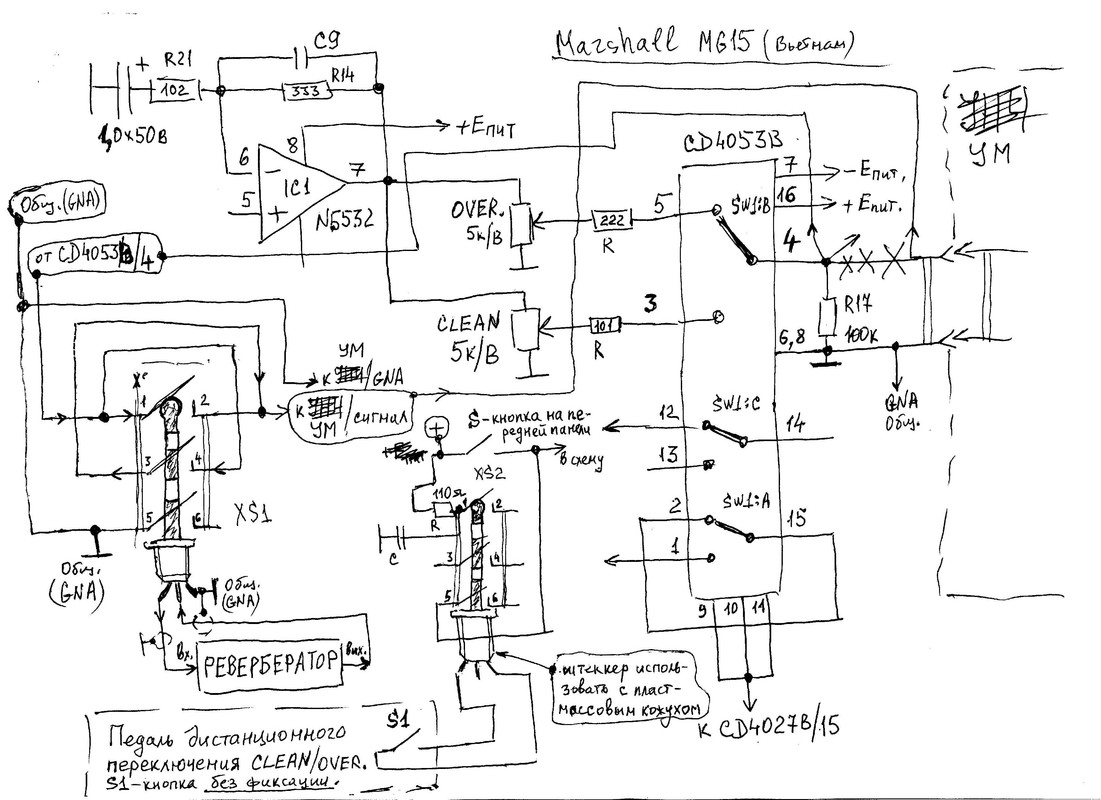 Marshall MG15 (Вьетнам)
C9
R21
+
102
R14
333
1,0x50В
8
+Eпит
6
−
7
5
+
IC1
N5532
CD4053B
УМ
7
−Eпит.
16
+Eпит.
SW1:B
Общ.(GNA)
OVER.
5к/В
222
R
5
4
от CD4053B/4
CLEAN
5к/В
101
R
3
R17
100к
6,8
GNA
Общ.
УМ
к /GNA
к /сигнал
УМ
S-кнопка на пе-
редней панели
в схему
12
SW1:C
14
13
1
2
3
4
5
6
XS1
XS2
110Ω
R
C
1
2
3
4
5
6
2
SW1:A
15
1
9
10
11
Общ.
(GNA)
Общ.
(GNA)
Вх.
РЕВЕРБЕРАТОР
Вых.
штеккер исполь-
зовать с пласт-
массовым кожухом
к CD4027B/15
S1
Педаль дистанционного
переключения CLEAN/OVER.
S1-кнопка без фиксации.